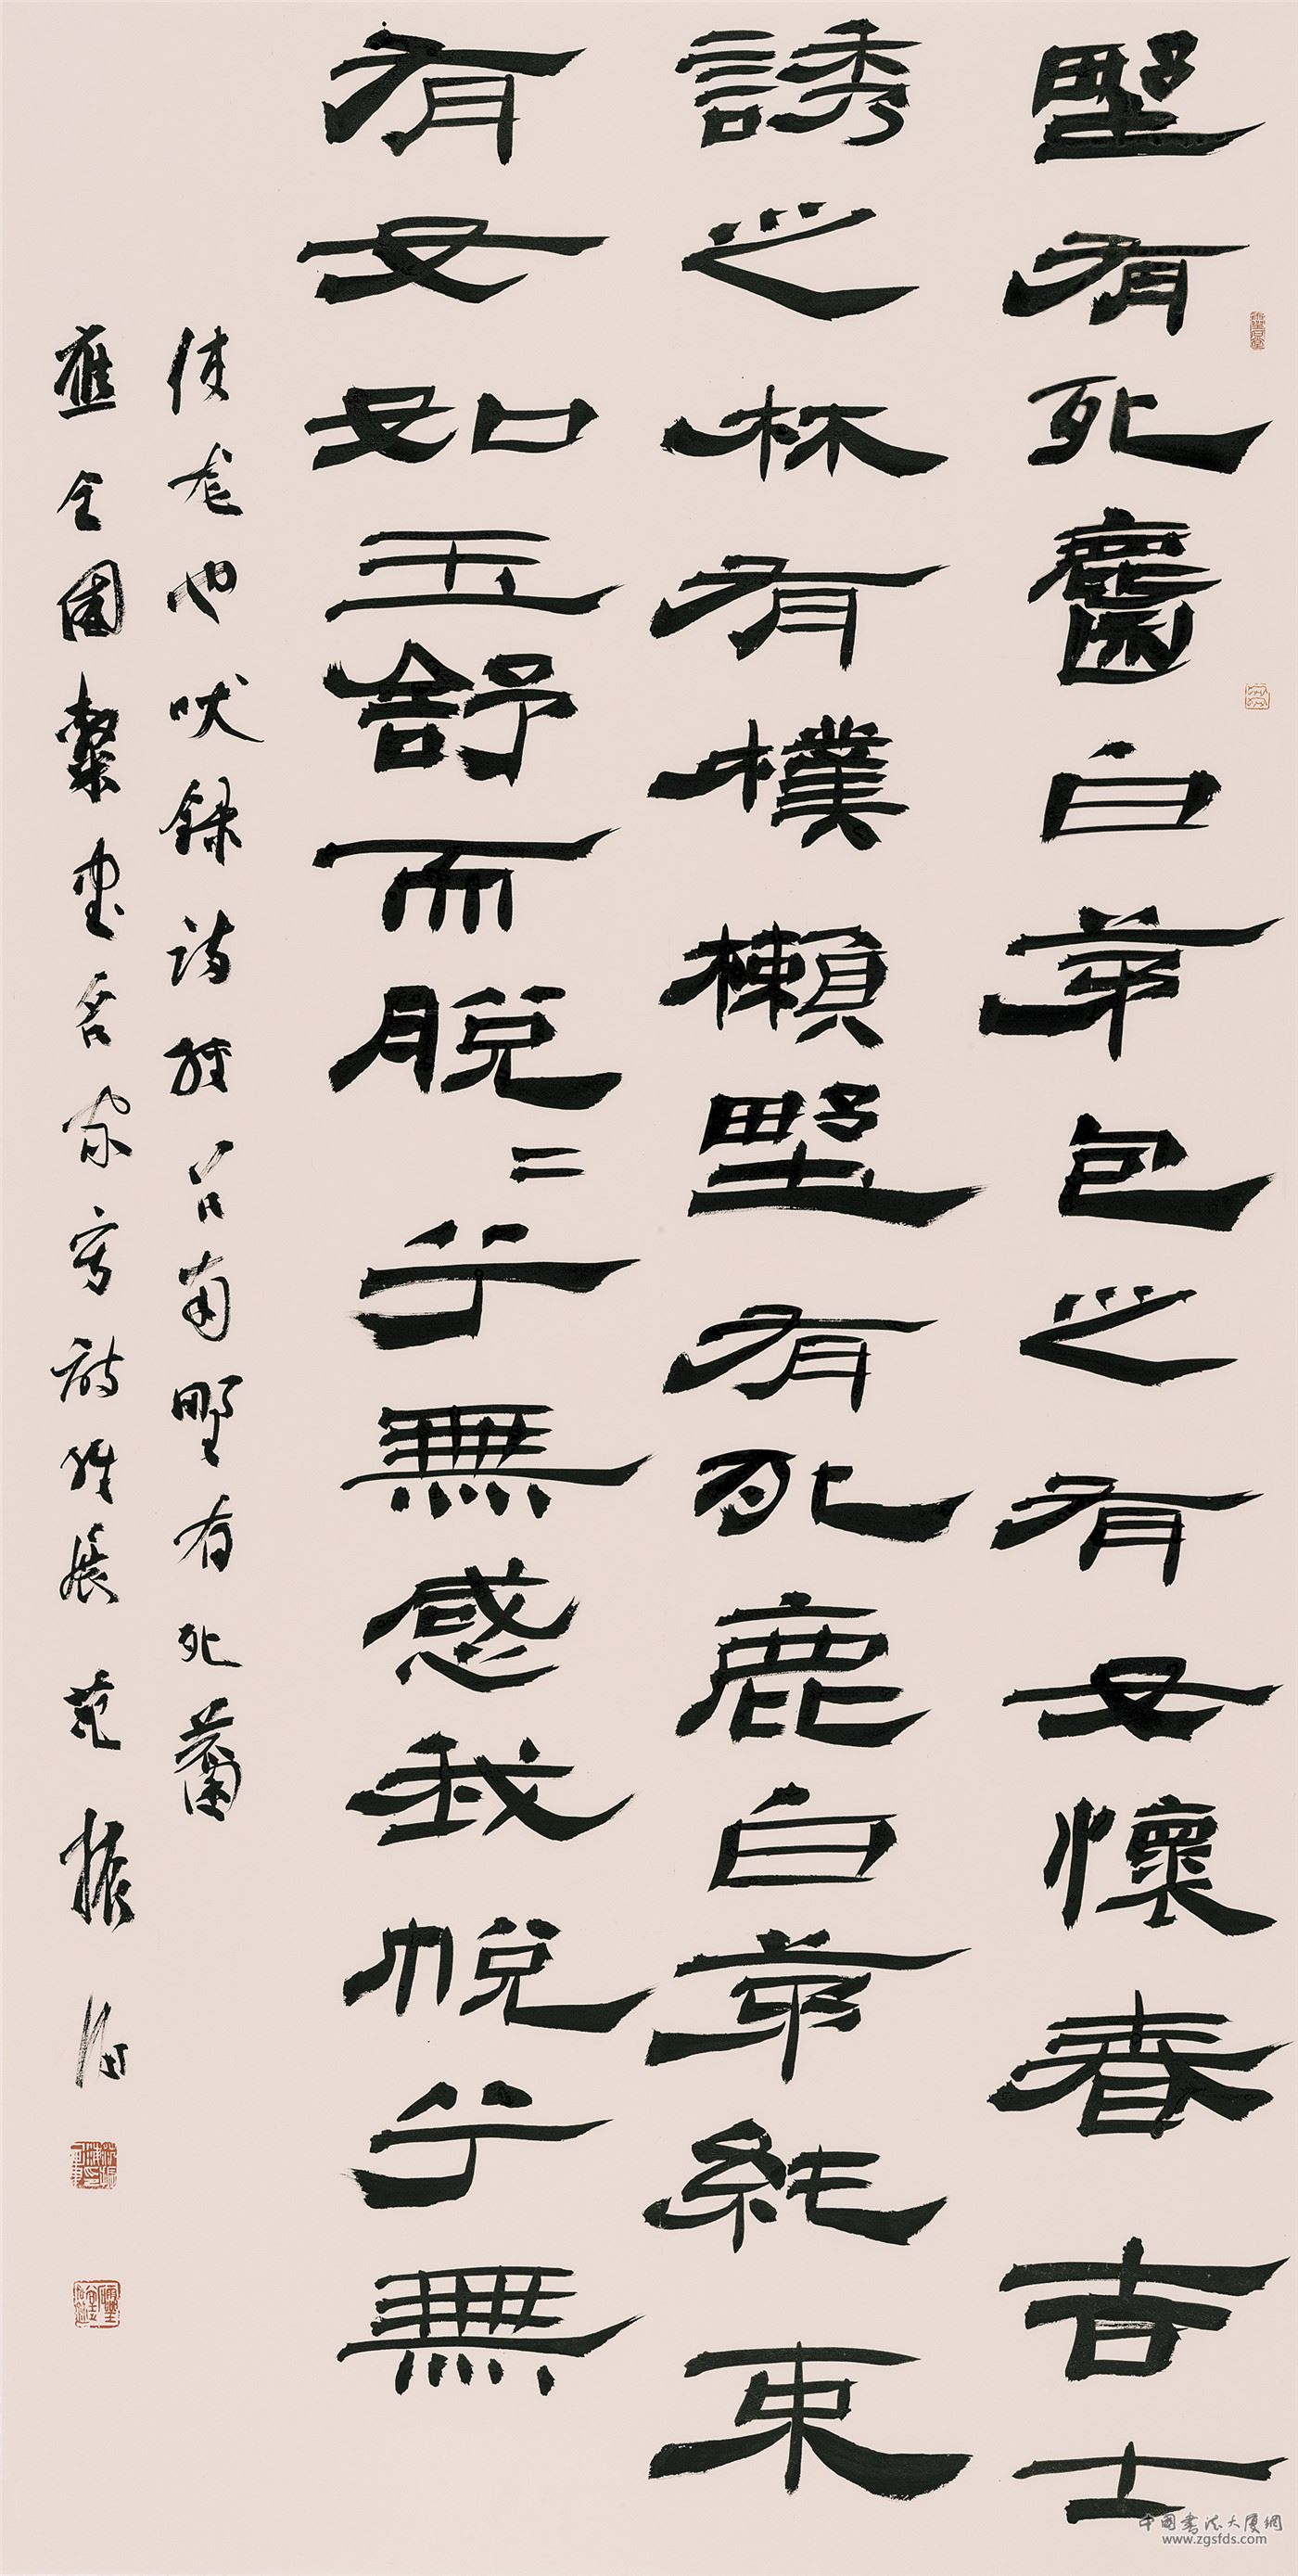 野有死麕白茅包之有女懷春吉士
誘之林有樸櫴野有死鹿白茅純束
有女如玉舒而脫〻兮無感我帨兮無
使尨也吠錄詩經召南野有死麕
應全國隸書名家寫詩經展 范振海
中国书法大厦网
www.zgsfds.com